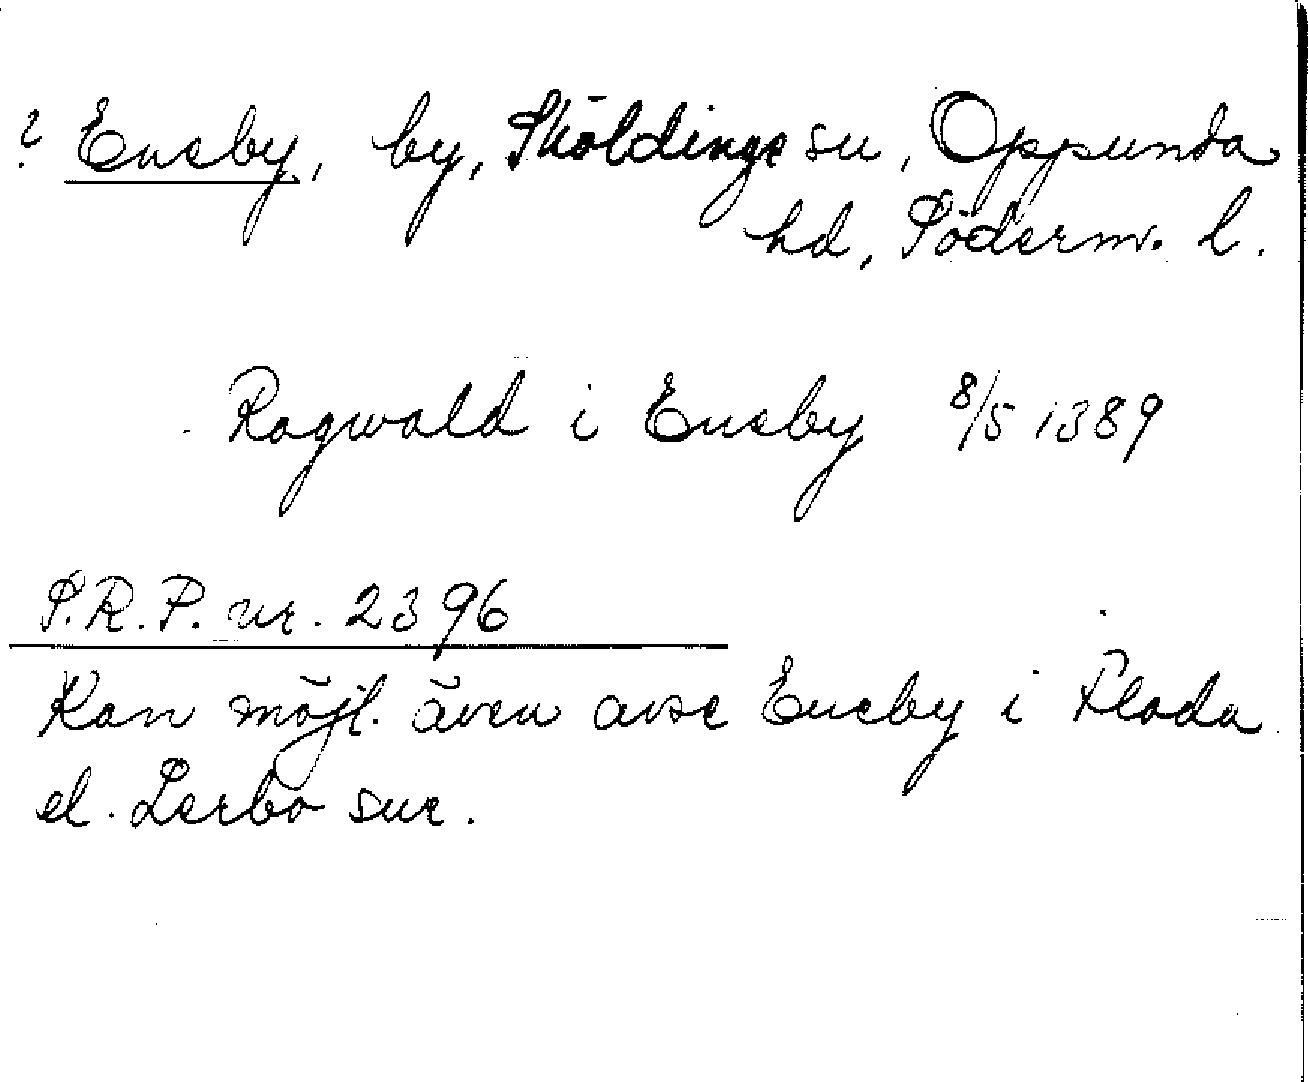 ? Eneby, by, Sköldinge sn, Oppunda
hd, Söderm. l.
Ragwald i Eneby 8/5 1389
S.R.P. nr. 2396
Kan möjl. även avse Eneby i Floda
el. Lerbo snr.